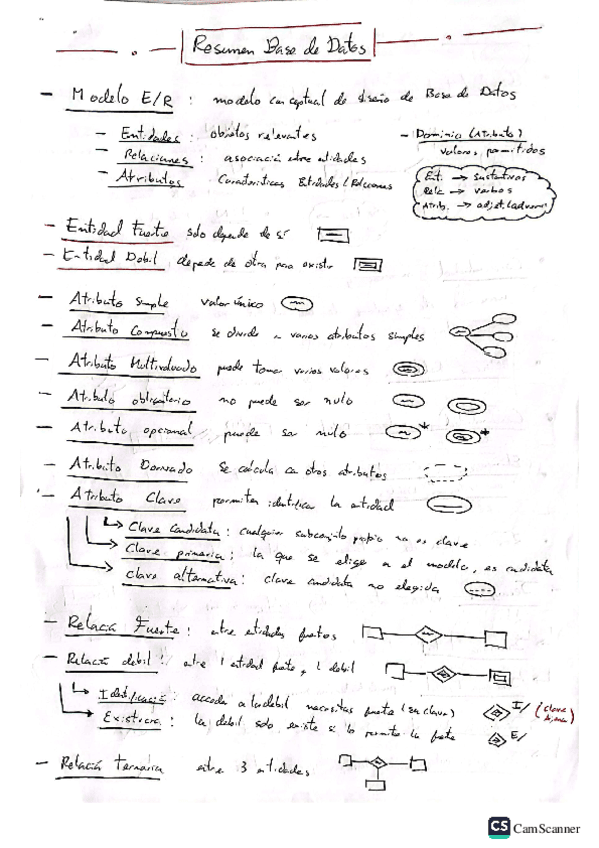 Resumen Base de Datos
- Modelo E/R : modelo conceptual de diseño de Base de Datos
- Entidades : objetos relevantes
- Relaciones : asociación entre entidades
- Atributos Características Entidades/Relaciones
- Dominio (Atributo)
valores permitidos
Ent. → sustantivos
Rela → verbos
Atrib. → adjet/adverb
- Entidad Fuerte solo depende de sí
- Entidad Débil depende de otra para existir
- Atributo Simple valor único
- Atributo Compuesto se divide en varios atributos simples
- Atributo Multivaluado puede tomar varios valores
- Atributo obligatorio no puede ser nulo
- Atributo opcional puede ser nulo
- Atributo Derivado Se calcula con otros atributos
- Atributo Clave permiten identificar la entidad
Clave Candidata : cualquier subconjunto propio no es clave
Clave primaria : la que se elige en el modelo, es candidata
Clave alternativa : clave candidata no elegida
- Relación Fuerte : entre entidades fuertes
- Relación débil : entre 1 entidad fuerte y 1 débil
Identificación : acceder a la débil necesitas fuerte (su clave)
I/ (clave ajena)
Existencia : la débil solo existe si lo permite la fuerte
E/
- Relación ternaria entre 3 entidades
CS CamScanner